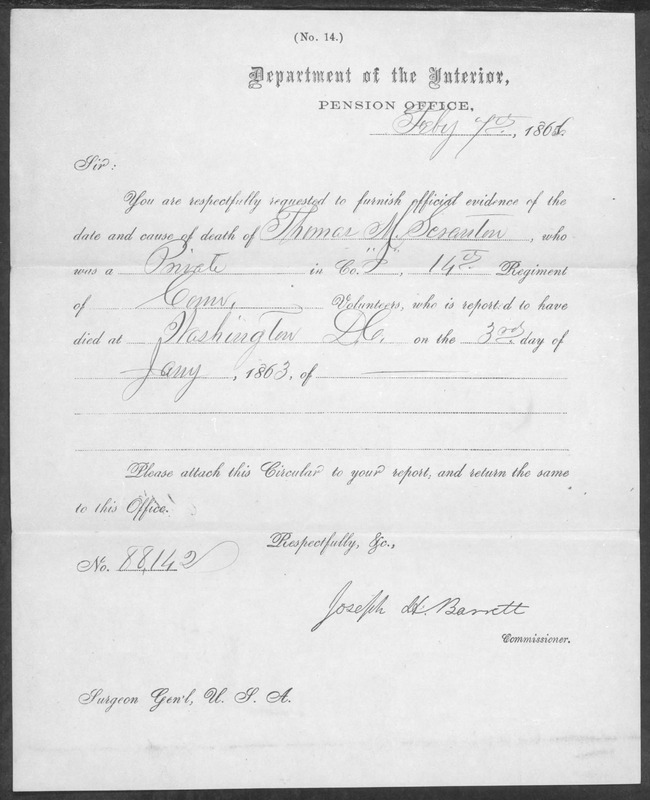 (No. 14.)
Department of the Interior,
PENSION OFFICE,
Feby 7th, 186
Sir:
You are respectfully requested to furnish official evidence of the
date and cause of death of Thomas M Scranton, who
was a Private in Co. , 14th Regiment
of Conn, Volunteers, who is report d to have
died at Washington D.C. on the 3rd day of
Jany, 1863, of
Please attach this Circular to your report, and return the same
to this Office.
Respectfully, &c.,
No. 88,142
Joseph H. Barrett
Commissioner.
Surgeon Gen'l, U. S. A.